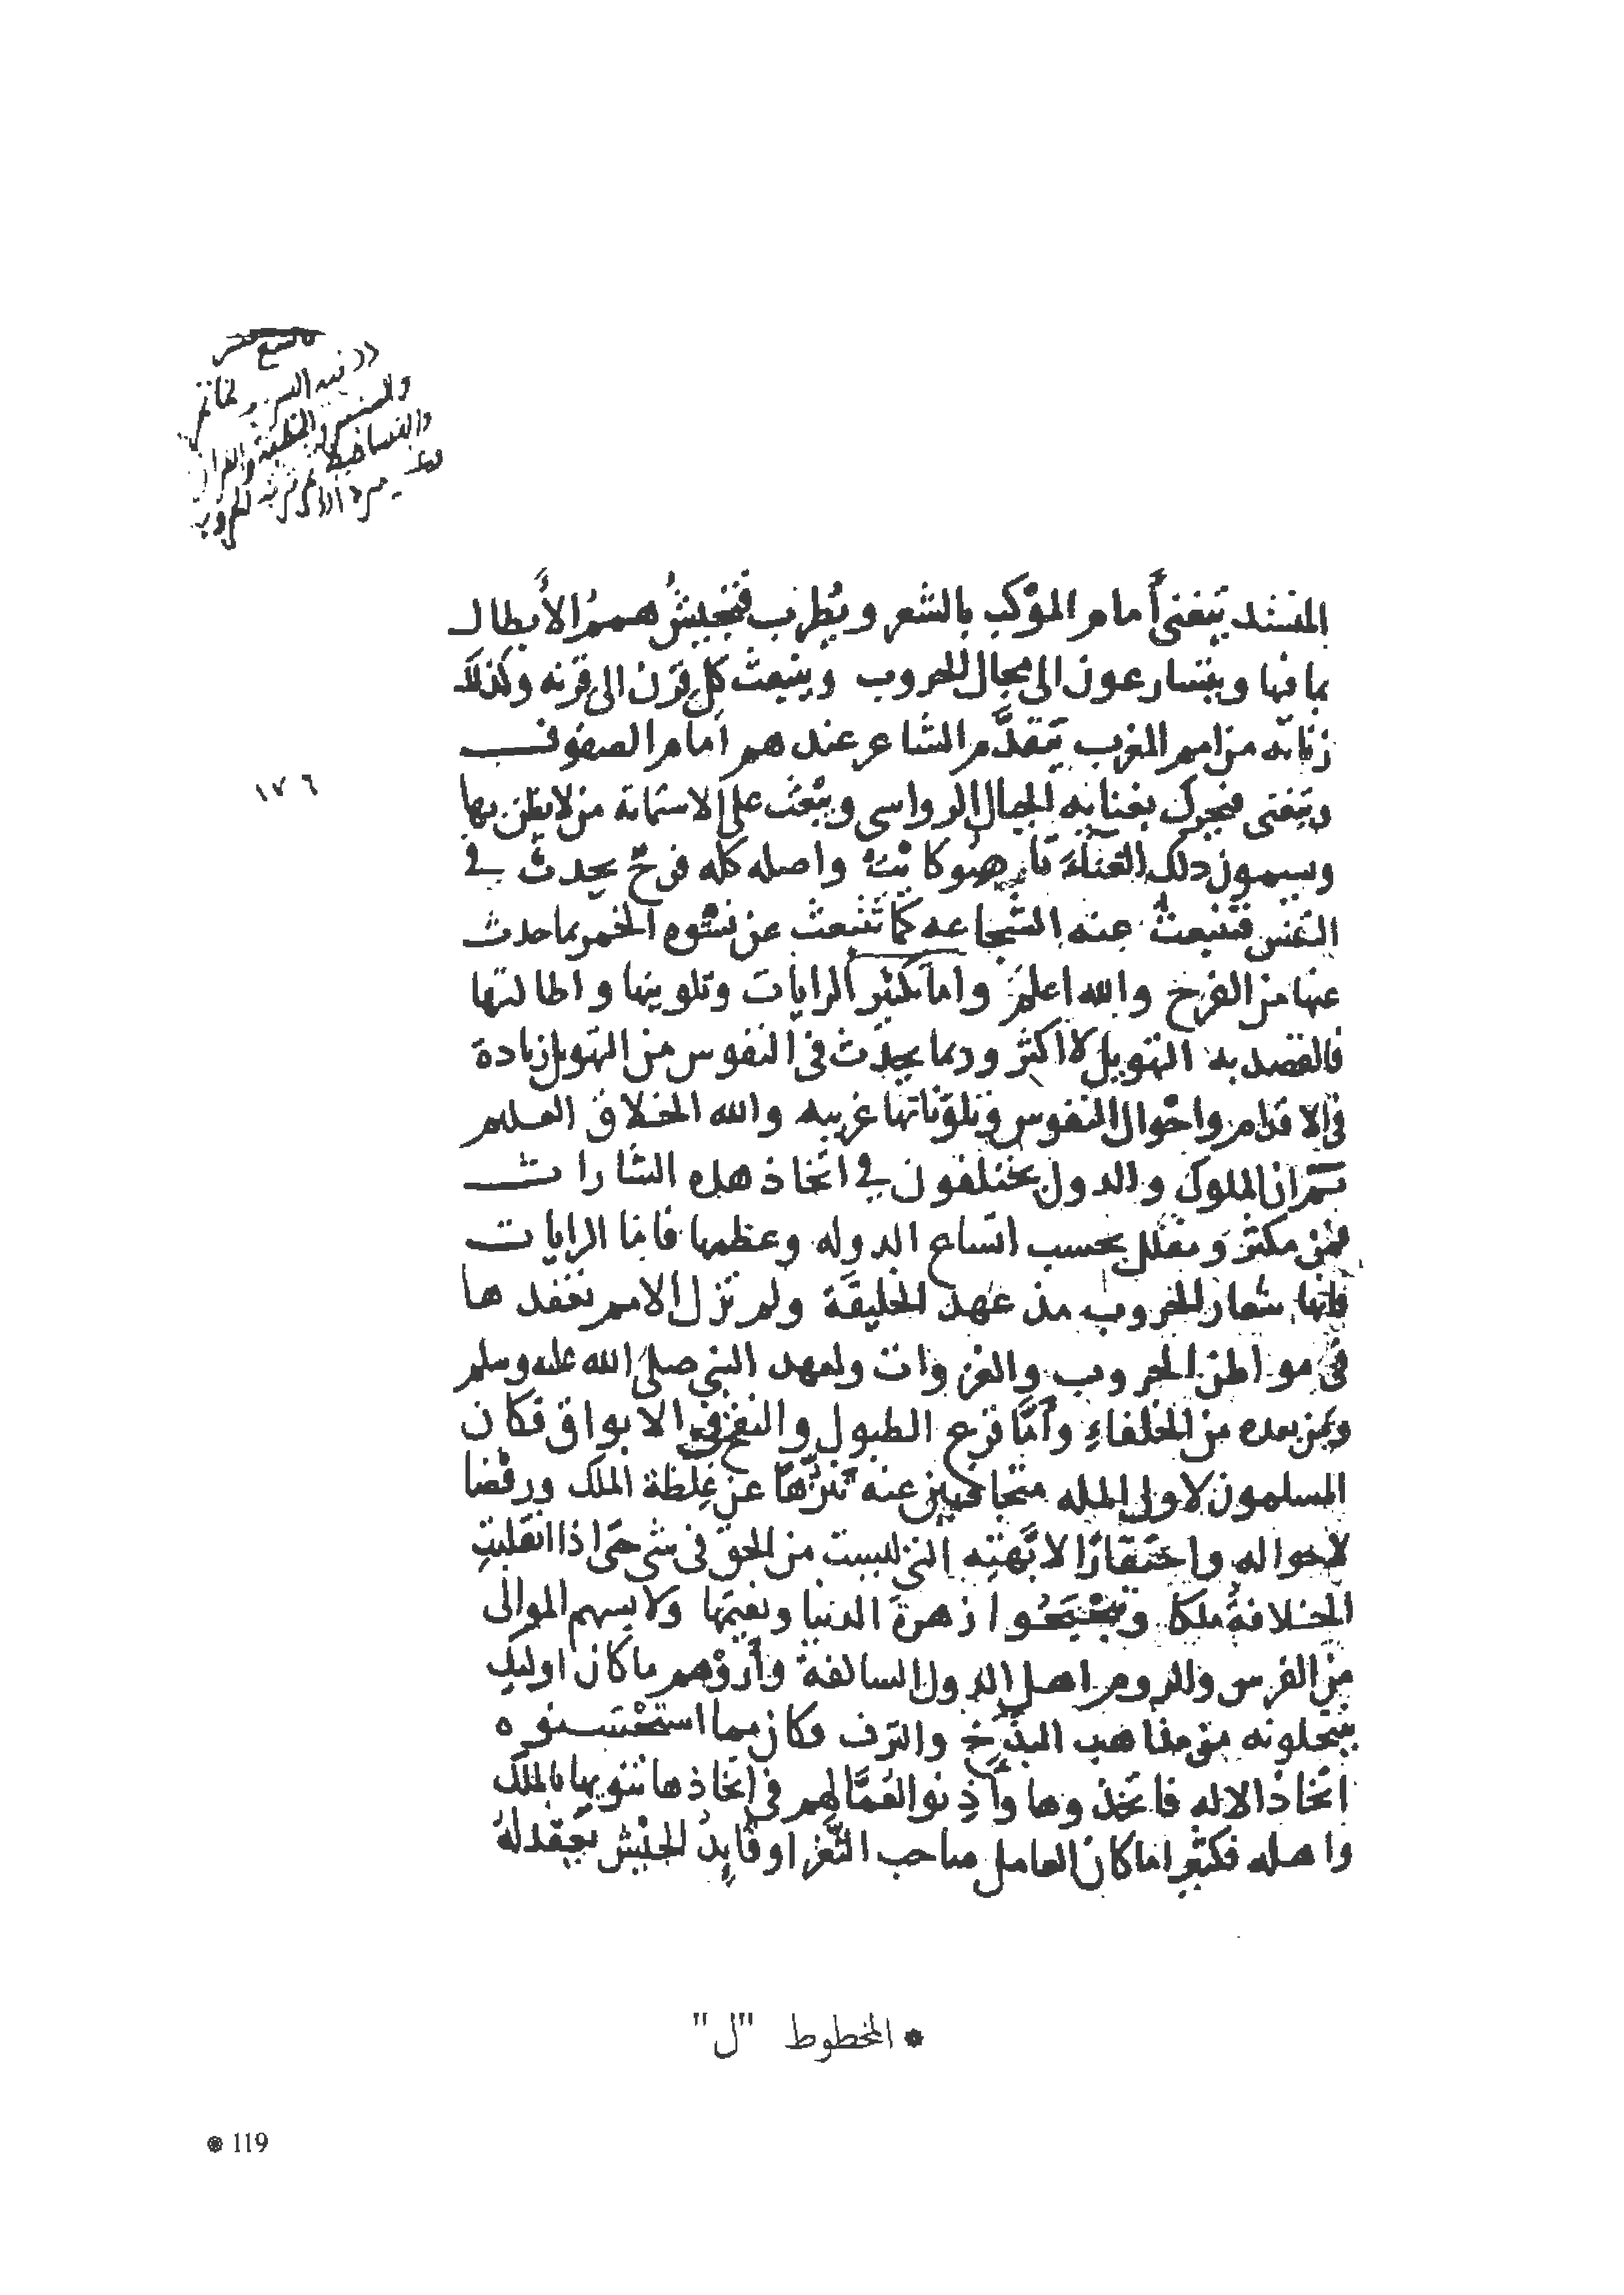 تاسع عشر
المنشد يتغنى أمام الموكب بالشعر ويُطرب فتجيشُ هممُ الأبطال
بما فيها ويتسارعون الى مجال الحروب وينبعث كل قرن الى قرنه وكذلك
زناته من امم المغرب يتقدَّم الشاعر عندهم أمام الصفوف
ويتغنى فيحرك بغنايه الجبال الرواسى ويبعث على الاستماتة من لا يظن بها
ويسمون ذلك الغناءَ تاصُوكايت واصله كله فرحٌ يحدثُ في
النفس فتنبعثُ عنه الشجاعه كما تنبعث عن نشوه الخمر بما حدث
عنها من الفرح والله اعلم واما تكثير الرايات وتلوينها واطالتها
فالقصد به التهويل لا اكثر وربما يحدث فى النفوس من التهويل زيادة
فى الاقدام واحوال النفوس وتلوناتها غريبه والله الخلاق العليم
ثم ان الملوك والدول يختلفون في اتخاذ هذه الشارات
فمن مكثر ومقلل بحسب اتساع الدوله وعظمها فاما الرايات
فانها شعار الحروب منذ عهد الخليقة ولم تزل الامم تعقدها
فى مواطن الحروب والغزوات ولعهد النبي صلى الله عليه وسلم
ومن بعده من الخلفاءِ وأمَّا قرع الطبول والنفخ في الابواق فكان
المسلمون لاول المله متجافين عنه تنزُّهًا عن غِلظة الملك ورفضا
لاحواله واحتقارًا لابَّهته التي ليست من الحق فى شى حتى اذا انقلبت
الخلافةُ ملكا وتبجَّحُوا زهرة الدنيا ونعيمها ولابسهم الموالى
من الفرس والروم اهل الدول السالفة وأرَوْهم ما كان اوليك
ينتحلونه من مذاهب البذخ والترف فكان مما استحسنوه
اتخاذ الاله فاتخذوها وأذِنوا لعُمَّالهم فى اتخاذها تنويها بالملك
واهله فكثيرا ما كان العامل صاحب الثغر او قايدُ الجيش يعقد لهُ
١٧٦
* المخطوط "ل"
* 119